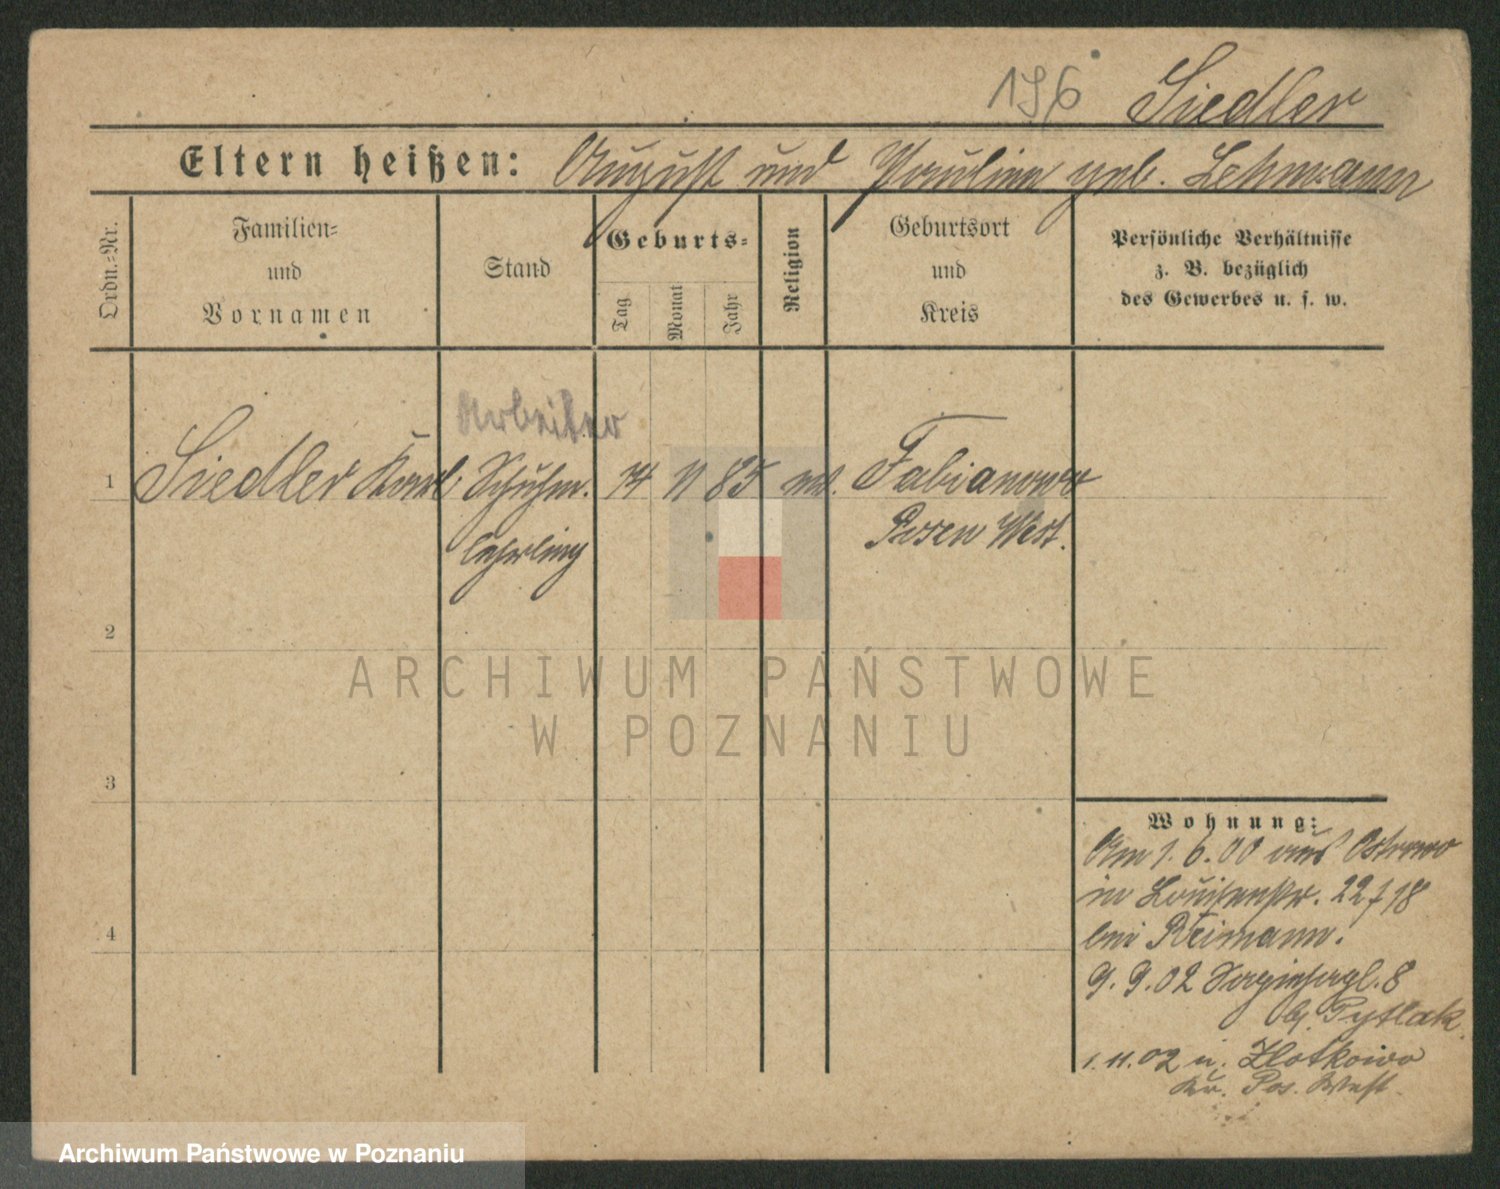 196 Siedler
Eltern heißen: August und Pauline geb. Lehmann
Ordn.-Nr.
Familien-
und
Vornamen
Stand
Geburts-
Tag
Monat
Jahr
Religion
Geburtsort
und
Kreis
Persönliche Verhältnisse
z. B. bezüglich
des Gewerbes u. s. w.
Arbeiter
1 Siedler Karl Schuhm. 14 11 85 ev. Fabianowo
lehrling Posen West.
2
3
4
Wohnung:
Am 1. 6. 00 aus Ostrowo
in Louisenstr. 22
bei Reimann.
9. 9. 02 8
b. Pytlak
1. 11. 02 n. Zlotkowo
Kr. Pos. West.
ARCHIWUM PAŃSTWOWE
W POZNANIU
Archiwum Państwowe w Poznaniu